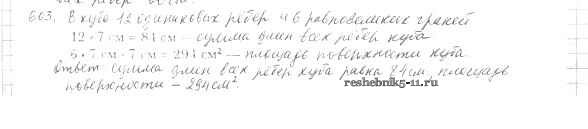 603. В кубе 12 одинаковых рёбер и 6 равновеликих граней
12 · 7 см = 84 см – сумма длин всех рёбер куба
6 · 7 см · 7 см = 294 см² – площадь поверхности куба.
Ответ сумма длин всех рёбер куба равна 84 см, площадь
поверхности – 294 см².
www.reshebnik5-11.ru